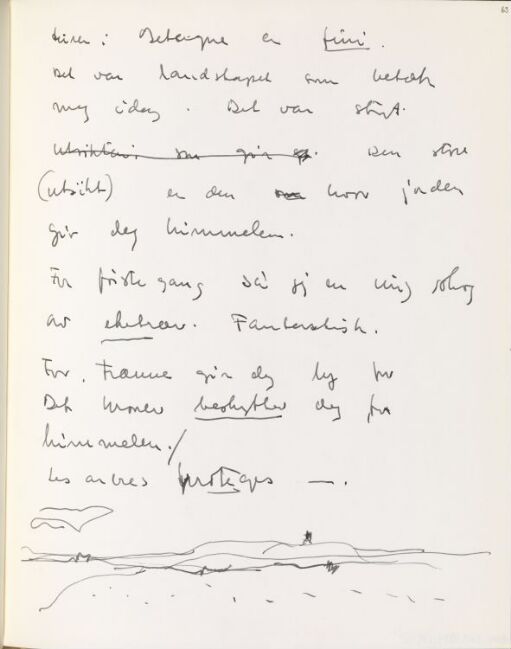 63
er fini.
Det var landskapet som betok
meg idag. Det var stort.
som gir Den store
(utsikt) er den hvor jorden
gir deg himmelen.
For første gang så jeg en ung skog
av eketrær. Fantastisk.
For, Trærne gir deg ly for
Det kroner beskytter deg for
himmelen./
Les arbres protéges —.